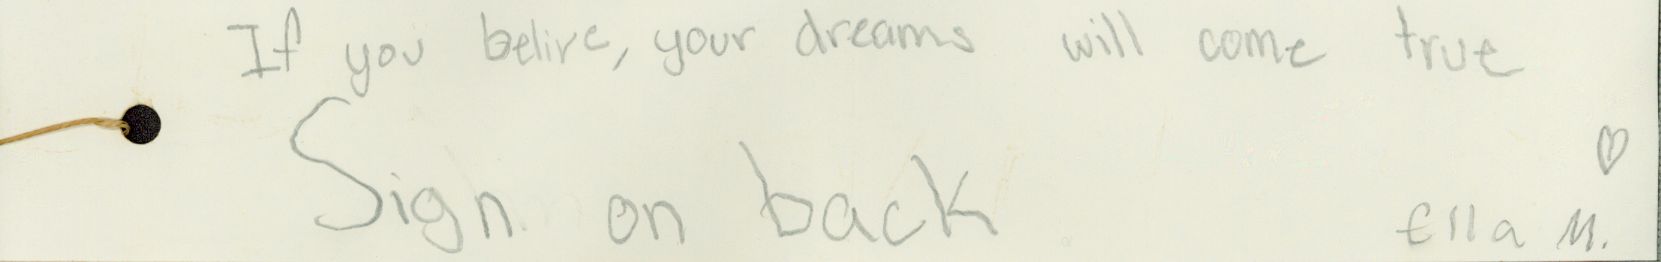 If you belive, your dreams will come true
Sign on back
♡
Ella M.